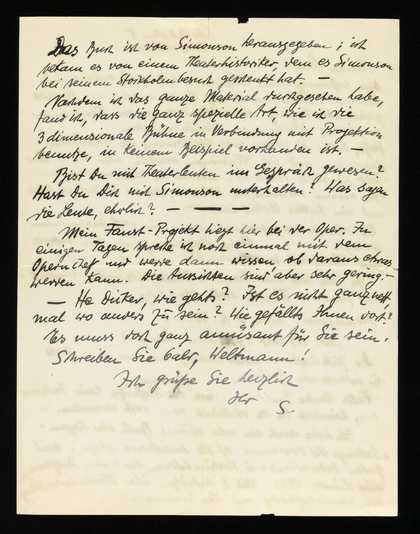 Das Buch ist von Simonson herausgegeben; ich
bekam es von einem Theaterhistoriker, dem es Simonson
bei seinem Stockholmbesuch geschenkt hat. —
Nachdem ich das ganze Material durchgesehen habe,
fand ich, dass die ganz spezielle Art, wie ich die
3 dimensionale Bühne in Verbindung mit Projektion
benutze, in keinem Beispiel vorhanden ist. —
Bist Du mit Theaterleuten im Gespräch gewesen?
Hast Du Dich mit Simonson unterhalten? Was sagen
die Leute, ehrlich? — — —
Mein Faust-Projekt liegt hier bei der Oper. In
einigen Tagen spreche ich noch einmal mit dem
Opernchef und werde dann wissen ob daraus etwas
werden kann. Die Aussichten sind aber sehr gering. —
— He Dicker, wie gehts? Ist es nicht ganz nett
mal wo anders zu sein? Wie gefällts Ihnen dort?
Es muss doch ganz amüsant für Sie sein.
Schreiben Sie bald, Weltmann!
Ich grüße Sie herzlich
Ihr S.